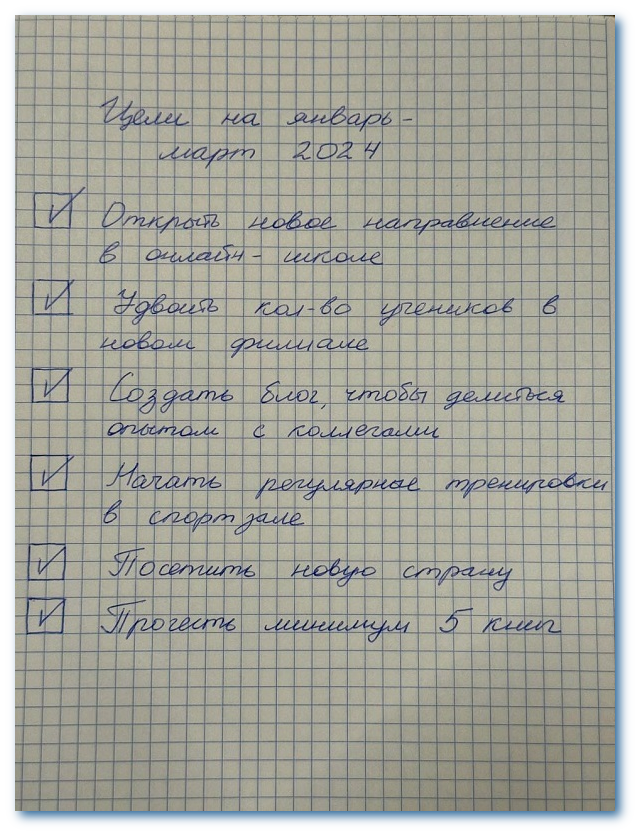 Цели на январь-
март 2024
Открыть новое направление
в онлайн- школе
Удвоить кол-во учеников в
новом филиале
Создать блог, чтобы делиться
опытом с коллегами
Начать регулярные тренировки
в спортзале
Посетить новую страну
Прочесть минимум 5 книг